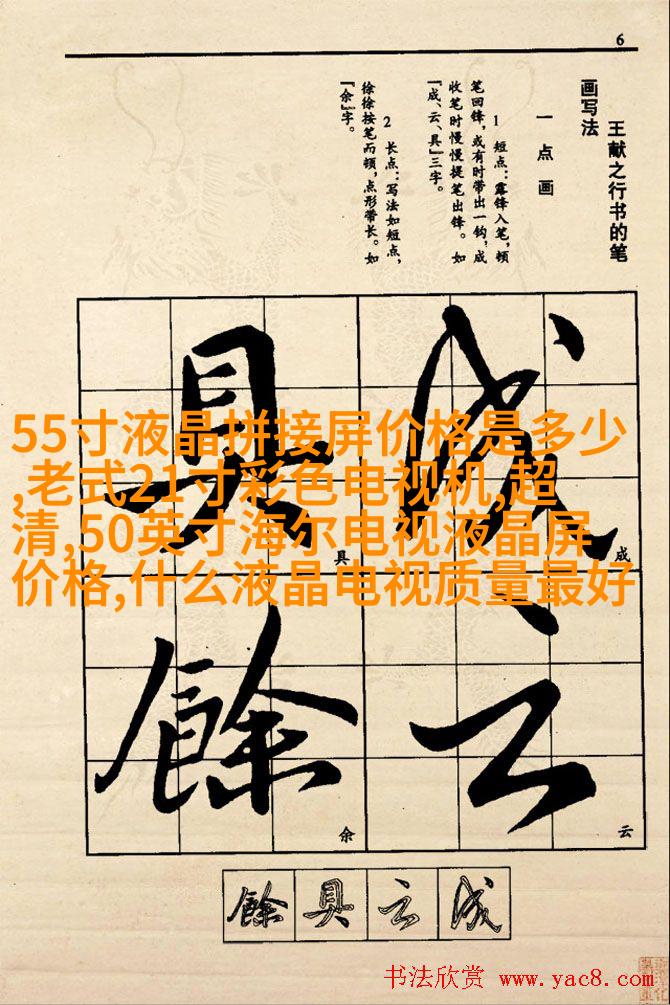 6
王献之行书的笔
画写法
一 点 画
1 短点：露锋入笔，顿
笔回锋，或有时带出一钩，成
收笔时慢慢提笔出锋。如
“成、云、具”三字。
2 长点：写法如短点，
徐徐按笔而顿，点形带长。如
“余”字。
成
具
具
成
55寸液晶拼接屏价格是多少
,老式21寸彩色电视机,超
清,50英寸海尔电视液晶屏
价格,什么液晶电视质量最好
餘
云
余
云
餘 具 云 成
书法欣赏 www.yac8.com